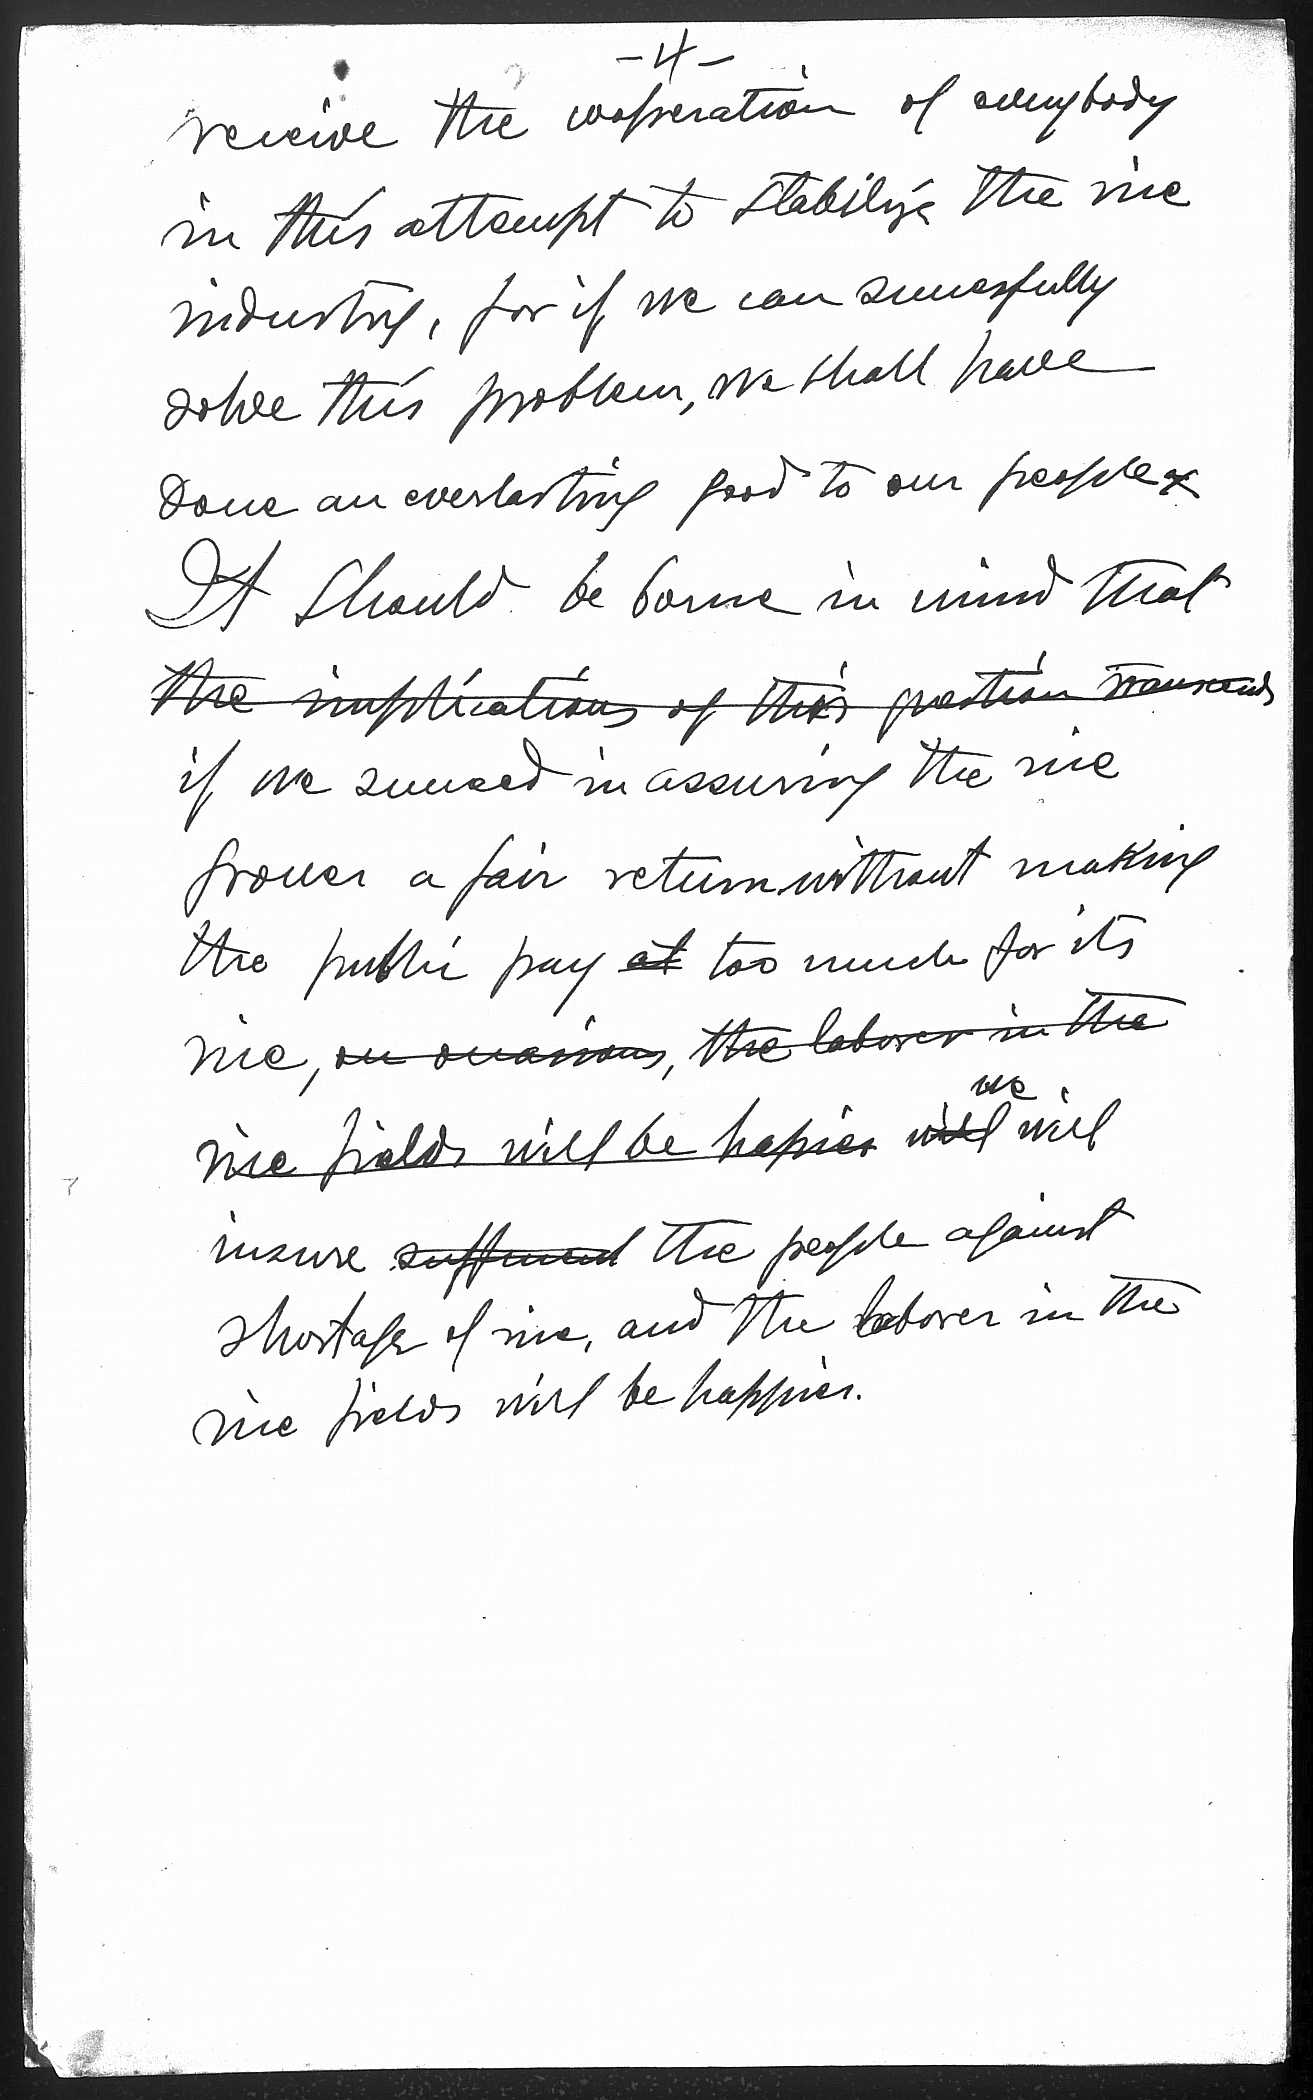 -4-
receive the cooperation of everybody
in this attempt to stabilize the rice
industry, for if we can sucessfully
solve this problem, we shall have
done an everlasting good to our people
It should be borne in mind that
the implications of this question transcends
if we succeed in assuring the rice
grower a fair return without making
the public pay at too much for its
rice, on occasions, the laborer in the
we
rice fields will be hapier will will
insure sufficient the people against
shortage of rice, and the laborer in the
rice fields will be happier.